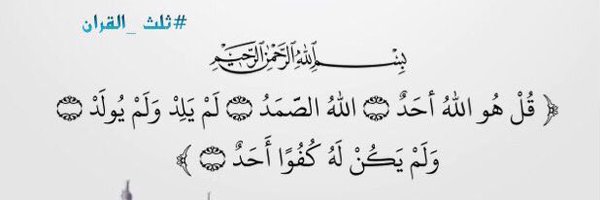 #ثلث _القران
بِسْمِ اللهِ الرَّحْمٰنِ الرَّحِيْمِ
﴿ قُلْ هُو اللهُ أحَدٌ ۝ اللهُ الصّمَدُ ۝ لَمْ يَلِدْ وَلَمْ يُولَدْ ۝
وَلَمْ يَكُنْ لَهُ كُفُوًا أَحَدٌ ۝ ﴾